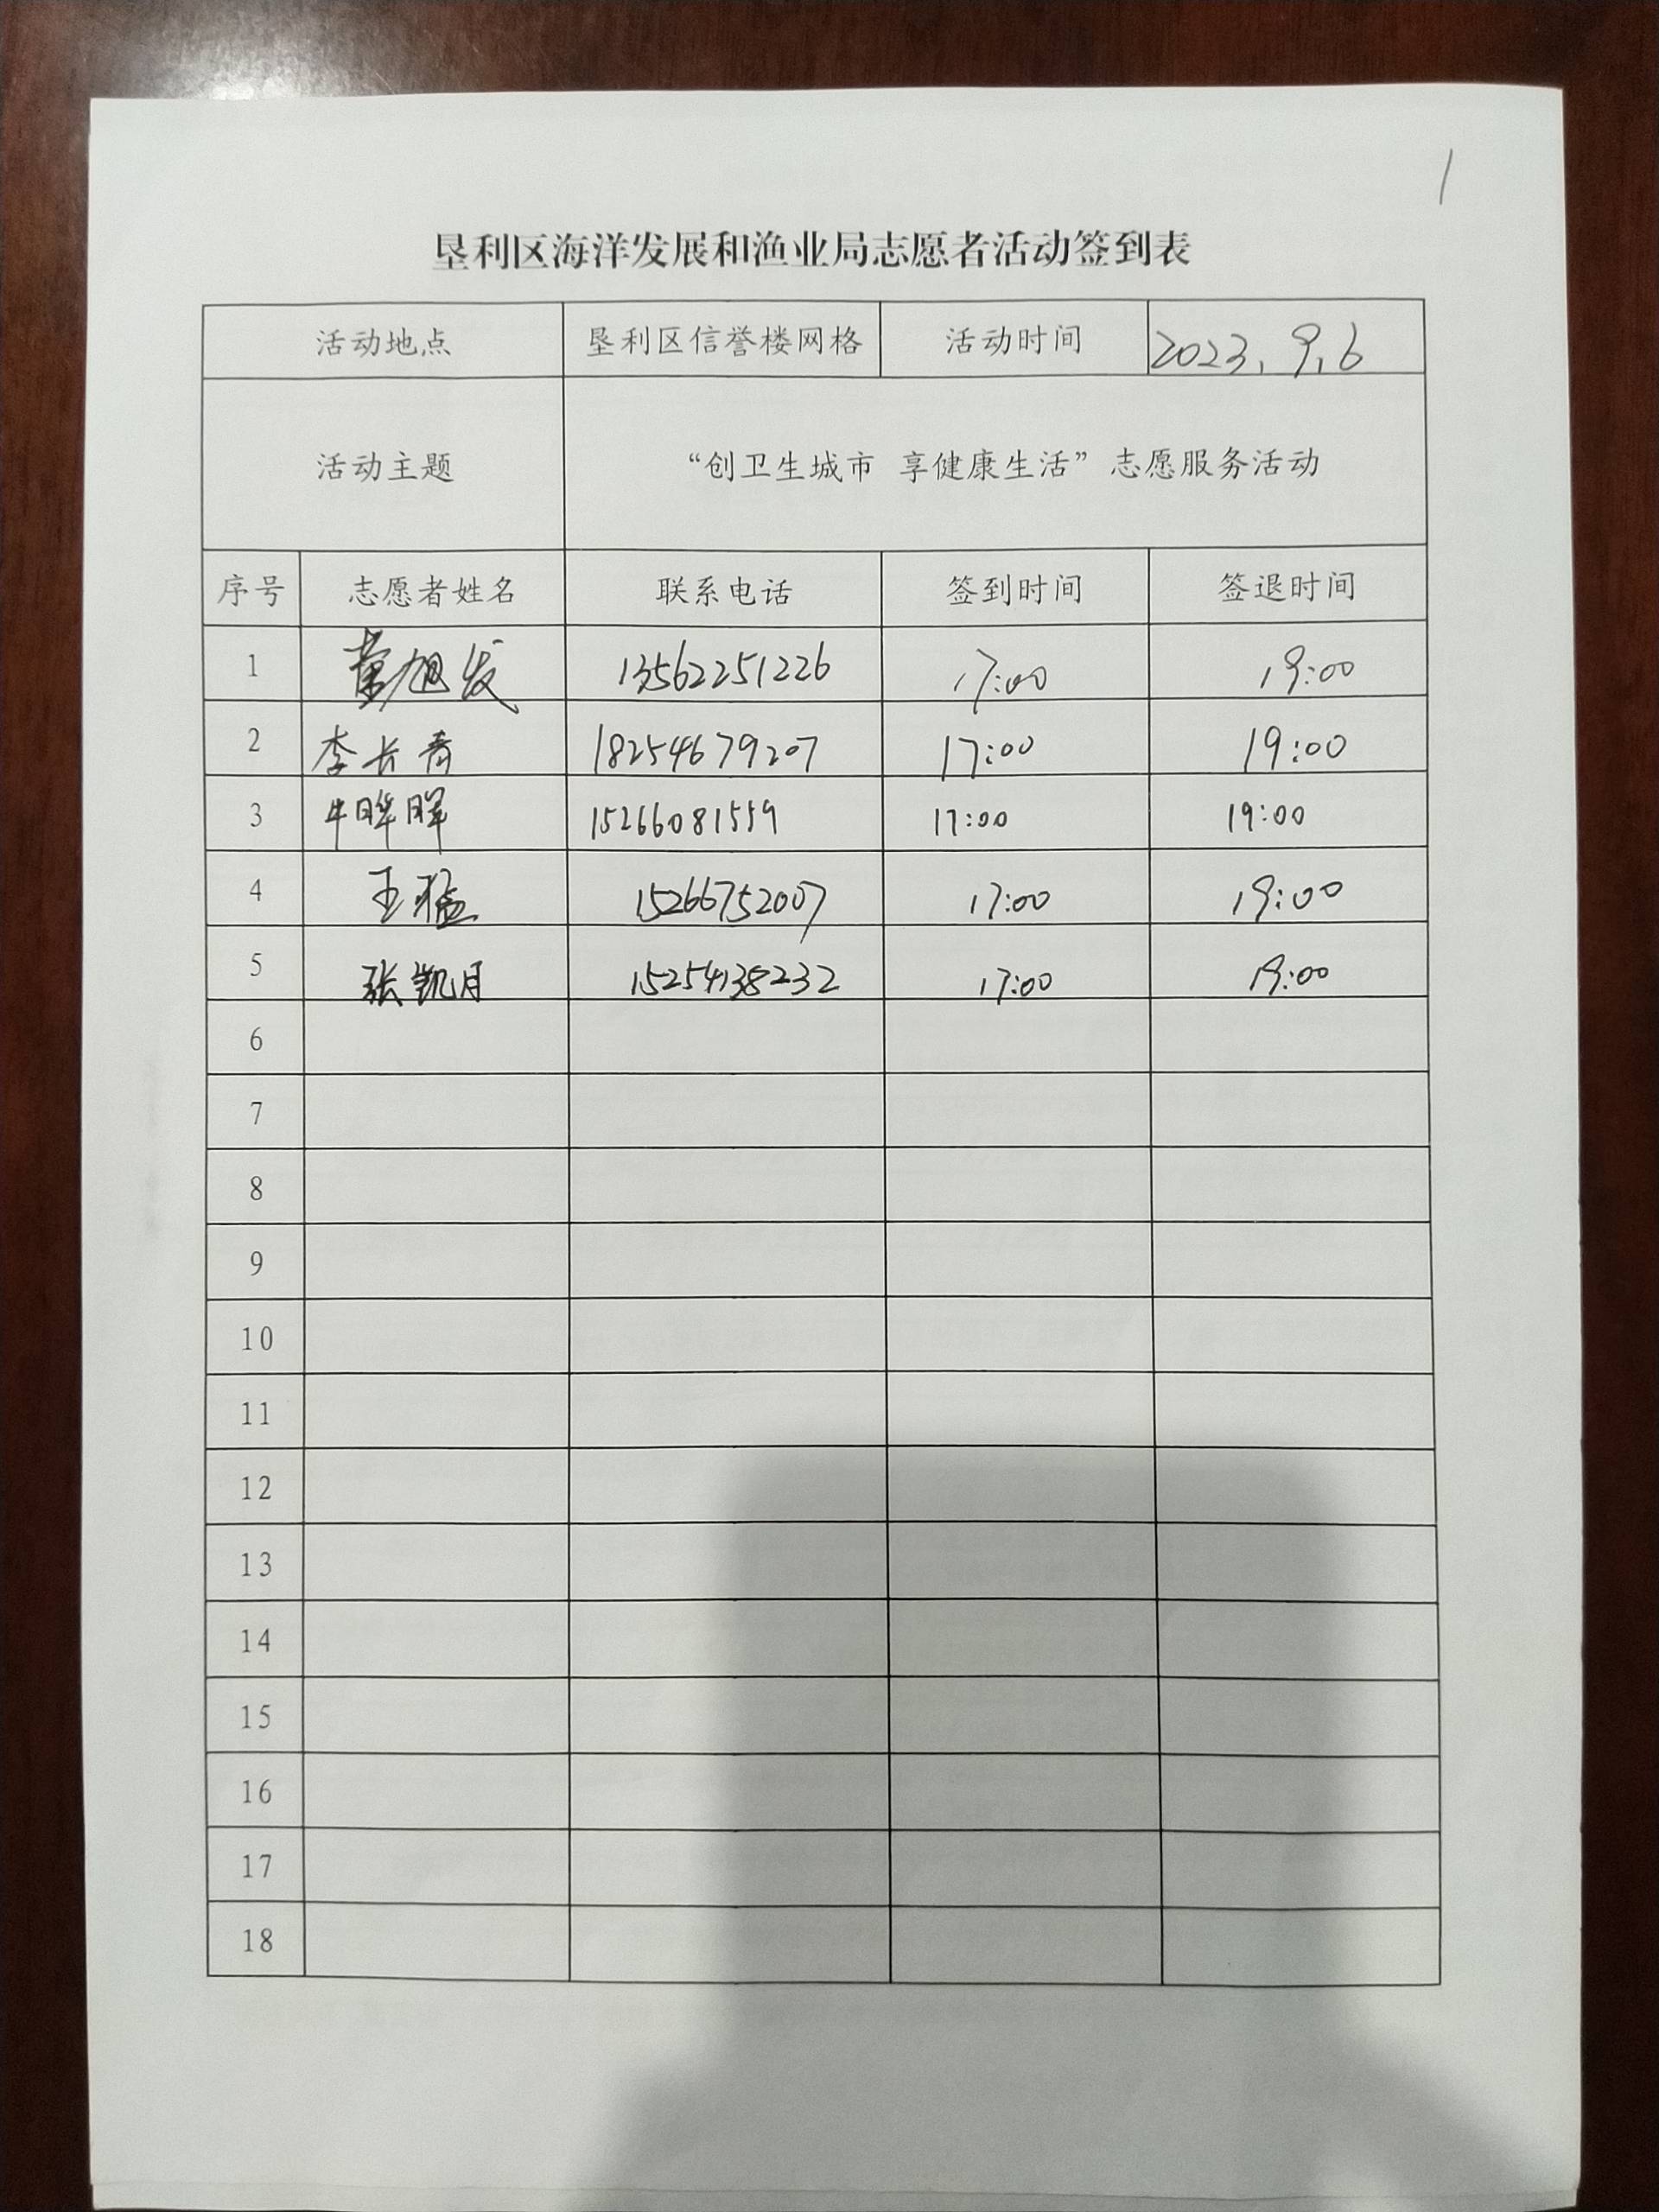 1
垦利区海洋发展和渔业局志愿者活动签到表
活动地点 垦利区信誉楼网格 活动时间 2023.9.6
活动主题 “创卫生城市 享健康生活”志愿服务活动
序号 志愿者姓名 联系电话 签到时间 签退时间
1 旭发 13562251226 17:00 19:00
2 李长青 18254679207 17:00 19:00
3 牛晔晖 15266081559 17:00 19:00
4 王猛 15266752007 17:00 19:00
5 张凯月 15254138232 17:00 19:00
6
7
8
9
10
11
12
13
14
15
16
17
18